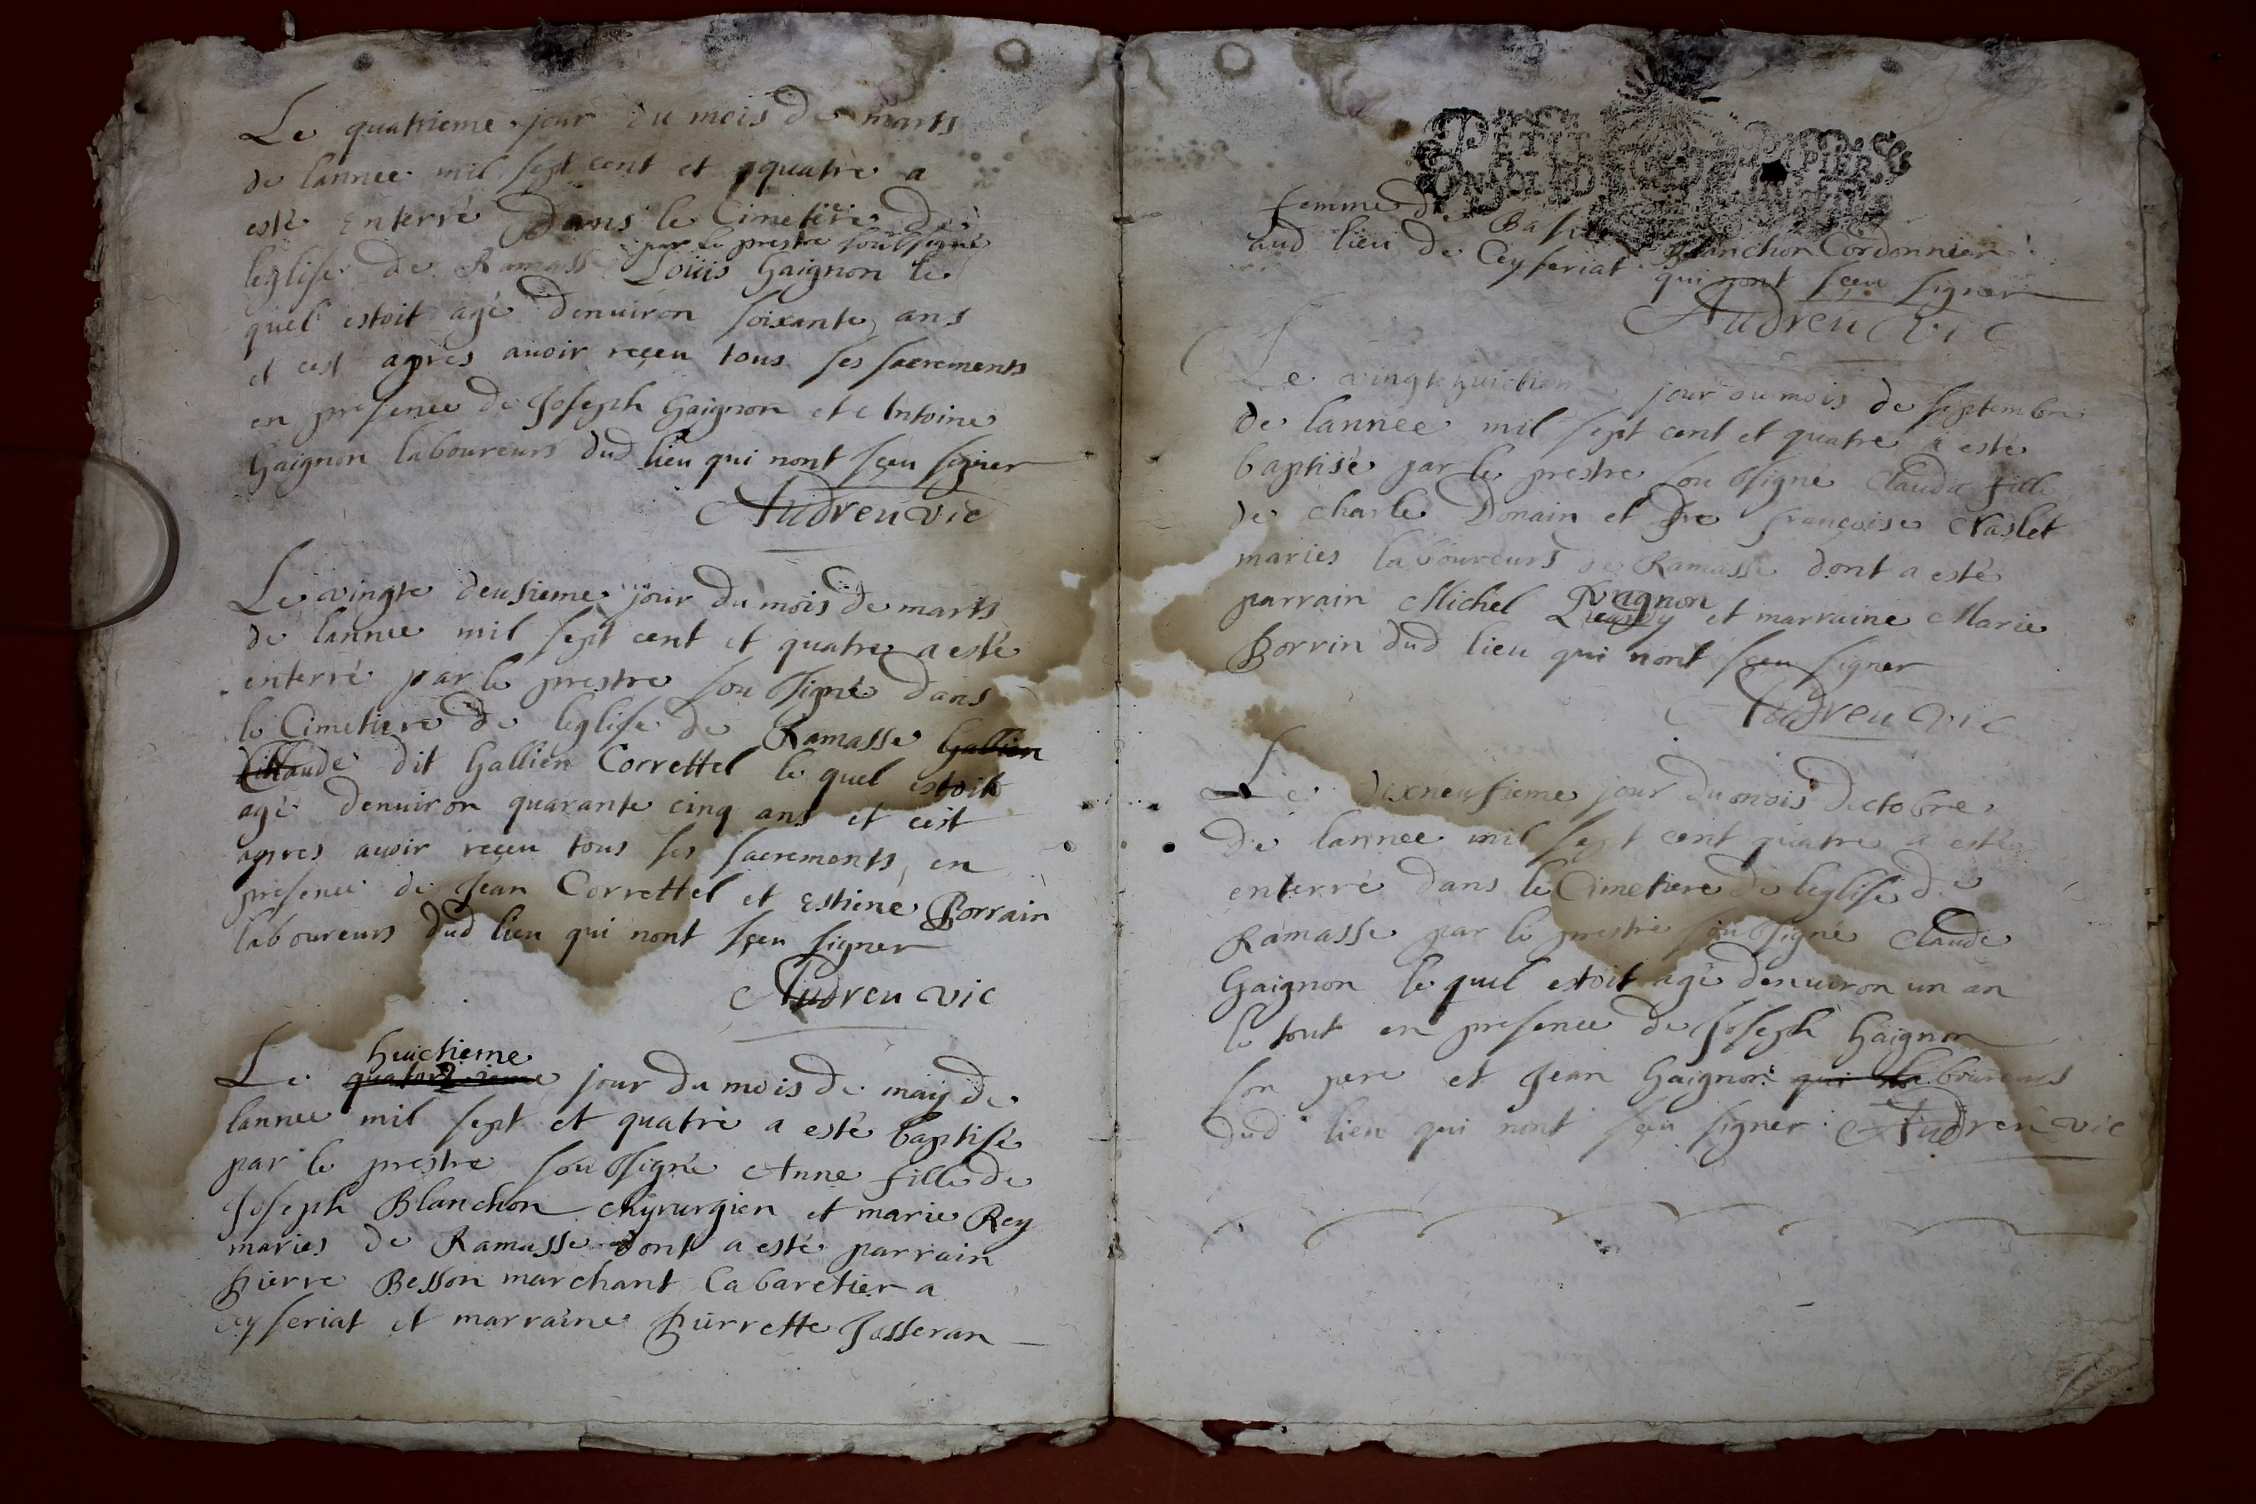 Le quatrieme jour du mois de marts
de lannee mil sept cent et quatre a
esté enterré dans le Cimetiere de
par le prestre soubsigné
leglise de Ramasse Loüis Gaignon le
quel estoit agé denuiron soixante ans
et cest apres auoir reçeu tous ses sacrements
en presence de Joseph Gaignon et Antoine
Gaignon laboureurs dud lieu qui nont sçeu signer
Audreu vic
Le vingte deusieme jour du mois de marts
de lannee mil sept cent et quatre a esté
enterré par le prestre soubsigné dans
le Cimetiere de leglise de Ramasse Gallien
Claude dit Gallien Correttel le quel estoit
agé denuiron quarante cinq ans et cest
apres auoir reçeu tous ses sacrements en
presence de Jean Correttel et Estiene Borrain
laboureurs dud lieu qui nont sçeu signer
Audreu vic
huictieme
Le quatorzieme jour du mois de may de
lannee mil sept et quatre a esté baptisé
par le prestre soubsigné Anne fille de
Joseph Blanchon chyrurgien et marie Rey
maries de Ramasse dont a esté parrain
pierre Besson marchant Cabaretier a
Ceyseriat et marraine pierrette Josseran
PETIT PAPIER
femme de Blanchon Cordonnier
aud lieu de Ceyseriat qui nont sçeu signer
Audreu vic
Le vingt huictieme jour du mois de septembre
de lannee mil sept cent et quatre a esté
baptisé par le prestre soubsigné Clauda fille
de Charle Donain et de françoise Vaslet
maries laboureurs de Ramasse dont a esté
parrain Michel et marraine Marie
Borrin dud lieu qui nont sçeu signer
Audreu vic
Le dixneufieme jour du mois doctobre
de lannee mil sept cent quatre a esté
enterré dans le Cimetiere de leglise de
Ramasse par le prestre soubsigné Claude
Gaignon le quel estoit agé denuiron un an
le tout en presence de Joseph Gaignon
son pere et Jean Gaignon qui laboureurs
dud lieu qui nont sçeu signer Audreu vic